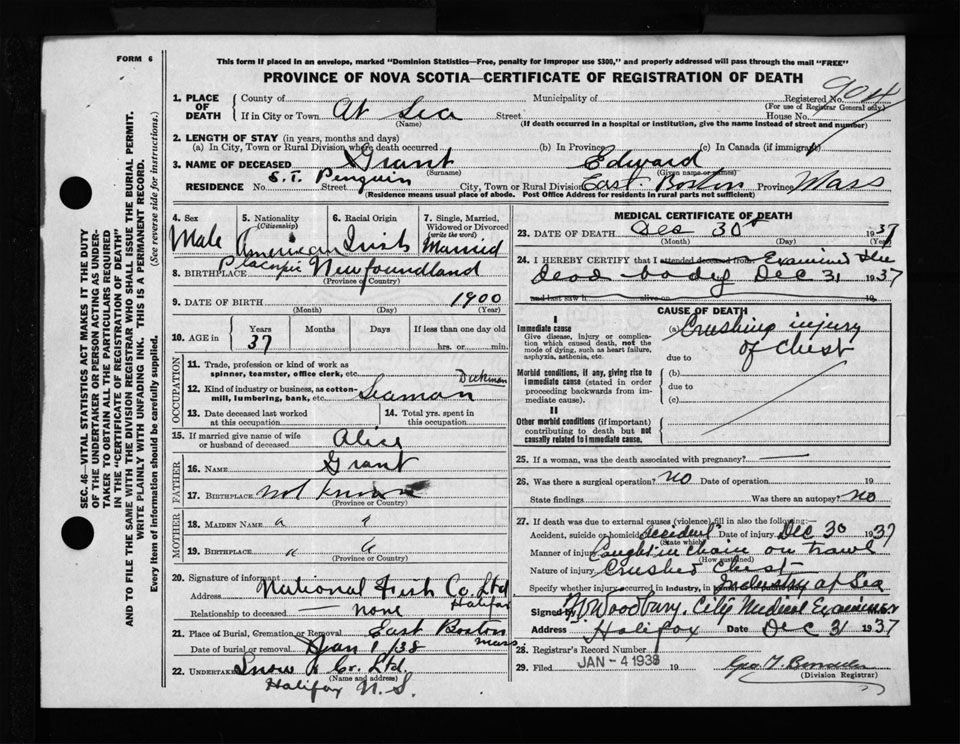 FORM 6
This form if placed in an envelope, marked "Dominion Statistics—Free, penalty for improper use $300," and properly addressed will pass through the mail "FREE"
PROVINCE OF NOVA SCOTIA—CERTIFICATE OF REGISTRATION OF DEATH
SEC. 46—VITAL STATISTICS ACT MAKES IT THE DUTY
OF THE UNDERTAKER OR PERSON ACTING AS UNDER-
TAKER TO OBTAIN ALL THE PARTICULARS REQUIRED
IN THE "CERTIFICATE OF REGISTRATION OF DEATH"
AND TO FILE THE SAME WITH THE DIVISION REGISTRAR WHO SHALL ISSUE THE BURIAL PERMIT.
WRITE PLAINLY WITH UNFADING INK. THIS IS A PERMANENT RECORD.
Every item of information should be carefully supplied. (See reverse side for instructions.)
1. PLACE OF DEATH County of Municipality of Registered No. 904
(For use of Registrar General only)
If in City or Town At Sea Street House No.
(Name) (If death occurred in a hospital or institution, give the name instead of street and number)
2. LENGTH OF STAY (in years, months and days)
(a) In City, Town or Rural Division where death occurred (b) In Province (c) In Canada (if immigrant)
3. NAME OF DECEASED Grant Edward
(Surname) (Given name or names)
RESIDENCE No. S.T. Penguin Street City, Town or Rural Division East Boston Province Mass
(Residence means usual place of abode. Post Office Address for residents in rural parts not sufficient)
4. Sex
Male
5. Nationality
(Citizenship)
American
6. Racial Origin
Irish
7. Single, Married,
Widowed or Divorced
(write the word)
Married
8. BIRTHPLACE Newfoundland
(Province or Country)
9. DATE OF BIRTH 1900
(Month) (Day) (Year)
10. AGE in Years Months Days If less than one day old
37 hrs. or min.
OCCUPATION
11. Trade, profession or kind of work as
spinner, teamster, office clerk, etc.
12. Kind of industry or business, as cotton-
mill, lumbering, bank, etc. Seaman
13. Date deceased last worked
at this occupation
14. Total yrs. spent in
this occupation
15. If married give name of wife
or husband of deceased Alice
FATHER
16. Name Grant
17. Birthplace not known
(Province or Country)
MOTHER
18. Maiden Name " "
19. Birthplace " "
(Province or Country)
20. Signature of informant National Fish Co. Ltd
Address Halifax
Relationship to deceased — none
21. Place of Burial, Cremation or Removal East Boston Mass
Date of burial or removal Jan 1/38
22. UNDERTAKER Snow & Co. Ltd.
(Name and address)
Halifax N.S.
MEDICAL CERTIFICATE OF DEATH
23. DATE OF DEATH Dec 30 1937
(Month) (Day) (Year)
24. I HEREBY CERTIFY that I attended deceased from Examined the
dead body Dec 31 1937
and last saw h alive on 19
CAUSE OF DEATH
I
Immediate cause
Give disease, injury or complica-
tion which caused death, not the
mode of dying, such as heart failure,
asphyxia, asthenia, etc.
(a) Crushing injury
of chest
due to
Morbid conditions, if any, giving rise to
immediate cause (stated in order
proceeding backwards from im-
mediate cause).
(b)
due to
(c)
II
Other morbid conditions (if important)
contributing to death but not
causally related to immediate cause.
25. If a woman, was the death associated with pregnancy? —
26. Was there a surgical operation? no Date of operation 19
State findings Was there an autopsy? no
27. If death was due to external causes (violence) fill in also the following:—
Accident, suicide or homicide accident Date of injury Dec 30 1937
(State which)
Manner of injury Caught in chain on trawl
(How sustained)
Nature of injury Crushed chest
Specify whether injury occurred in industry, in home or public place Industry at Sea
Signed by Woodbury. City Medical Examiner
Address Halifax Date Dec 31 1937
28. Registrar's Record Number
29. Filed JAN - 4 1938 19
(Division Registrar)